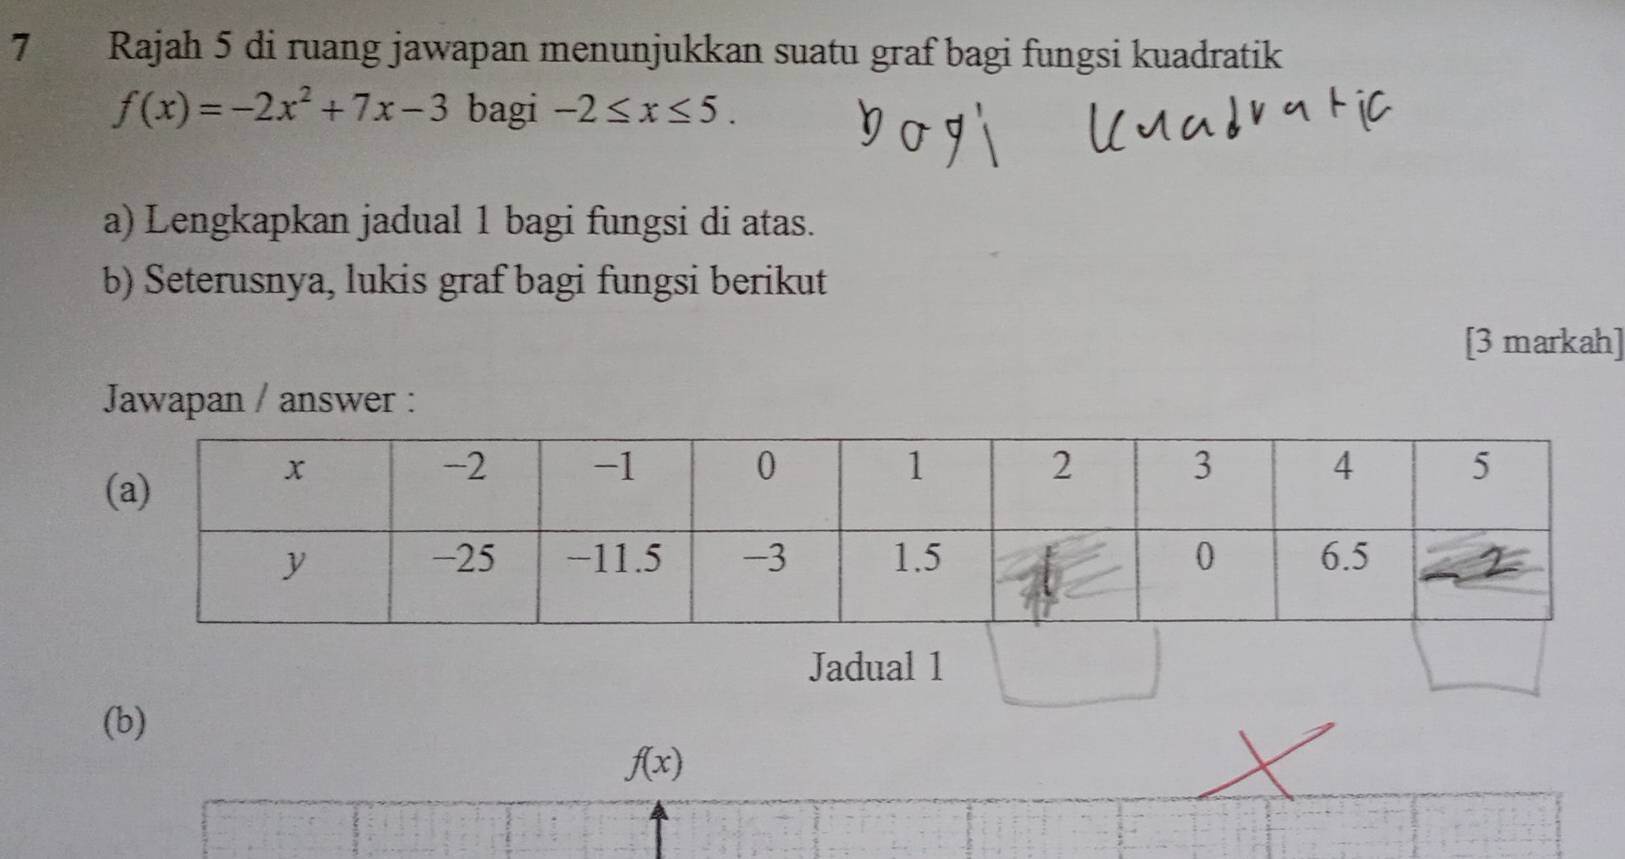 7 Rajah 5 di ruang jawapan menunjukkan suatu graf bagi fungsi kuadratik
f(x) = −2x² + 7x − 3 bagi −2 ≤ x ≤ 5 .
bagi kuadratic
a) Lengkapkan jadual 1 bagi fungsi di atas.
b) Seterusnya, lukis graf bagi fungsi berikut
[3 markah]
Jawapan / answer :
(a)
x −2 −1 0 1 2 3 4 5
y −25 −11.5 −3 1.5 0 6.5 −2
Jadual 1
(b)
f(x)